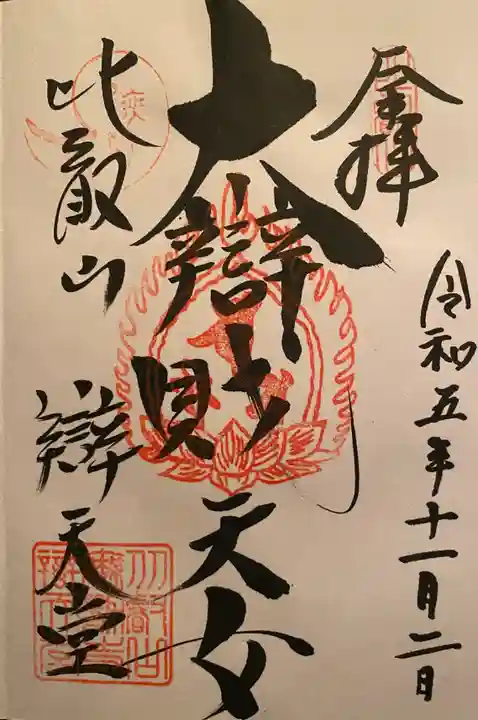 奉拝
令和五年十一月二日
大辯財天女
比叡山
辯天堂